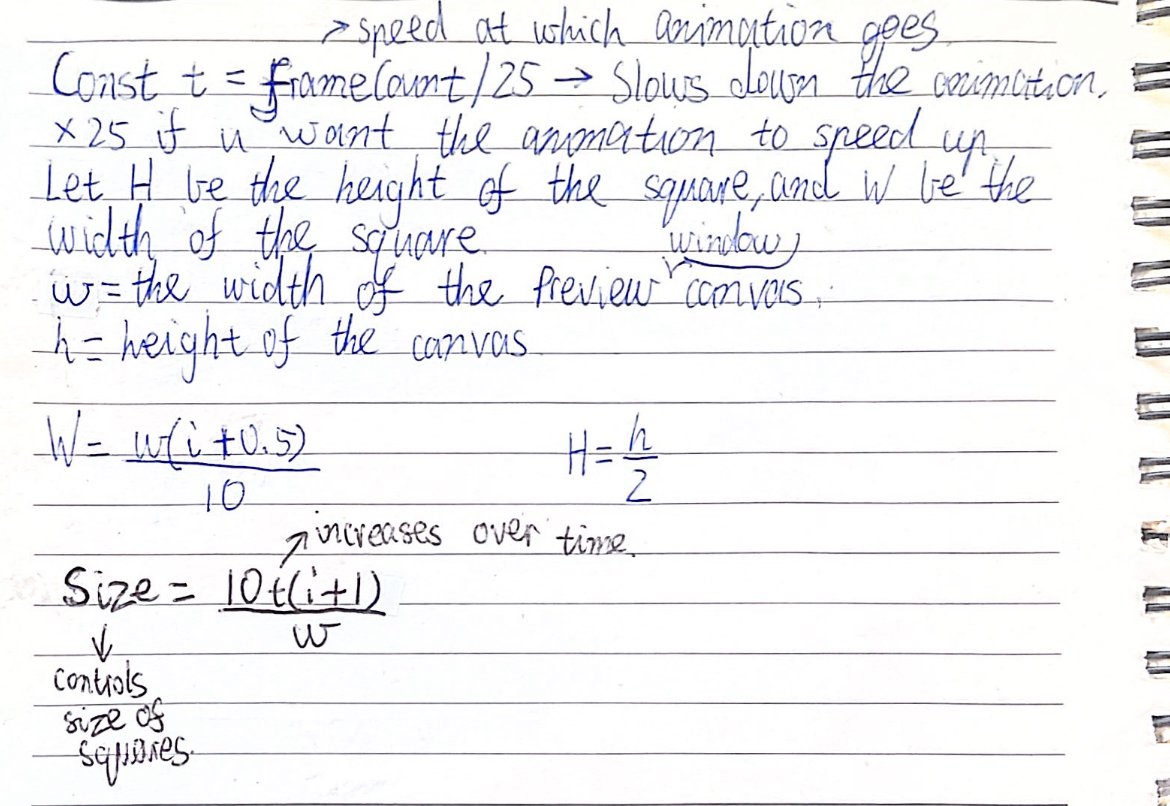 ↗ speed at which animation goes
Const t = frameCount/25 → Slows down the animation.
×25 if u want the animation to speed up.
Let H be the height of the square, and W be the
width of the square.
window
w = the width of the Preview canvas.
h = height of the canvas
W = w(i + 0.5) / 10
H = h / 2
↗ increases over time.
Size = 10t(i+1) / w
↓
controls
size of
squares.